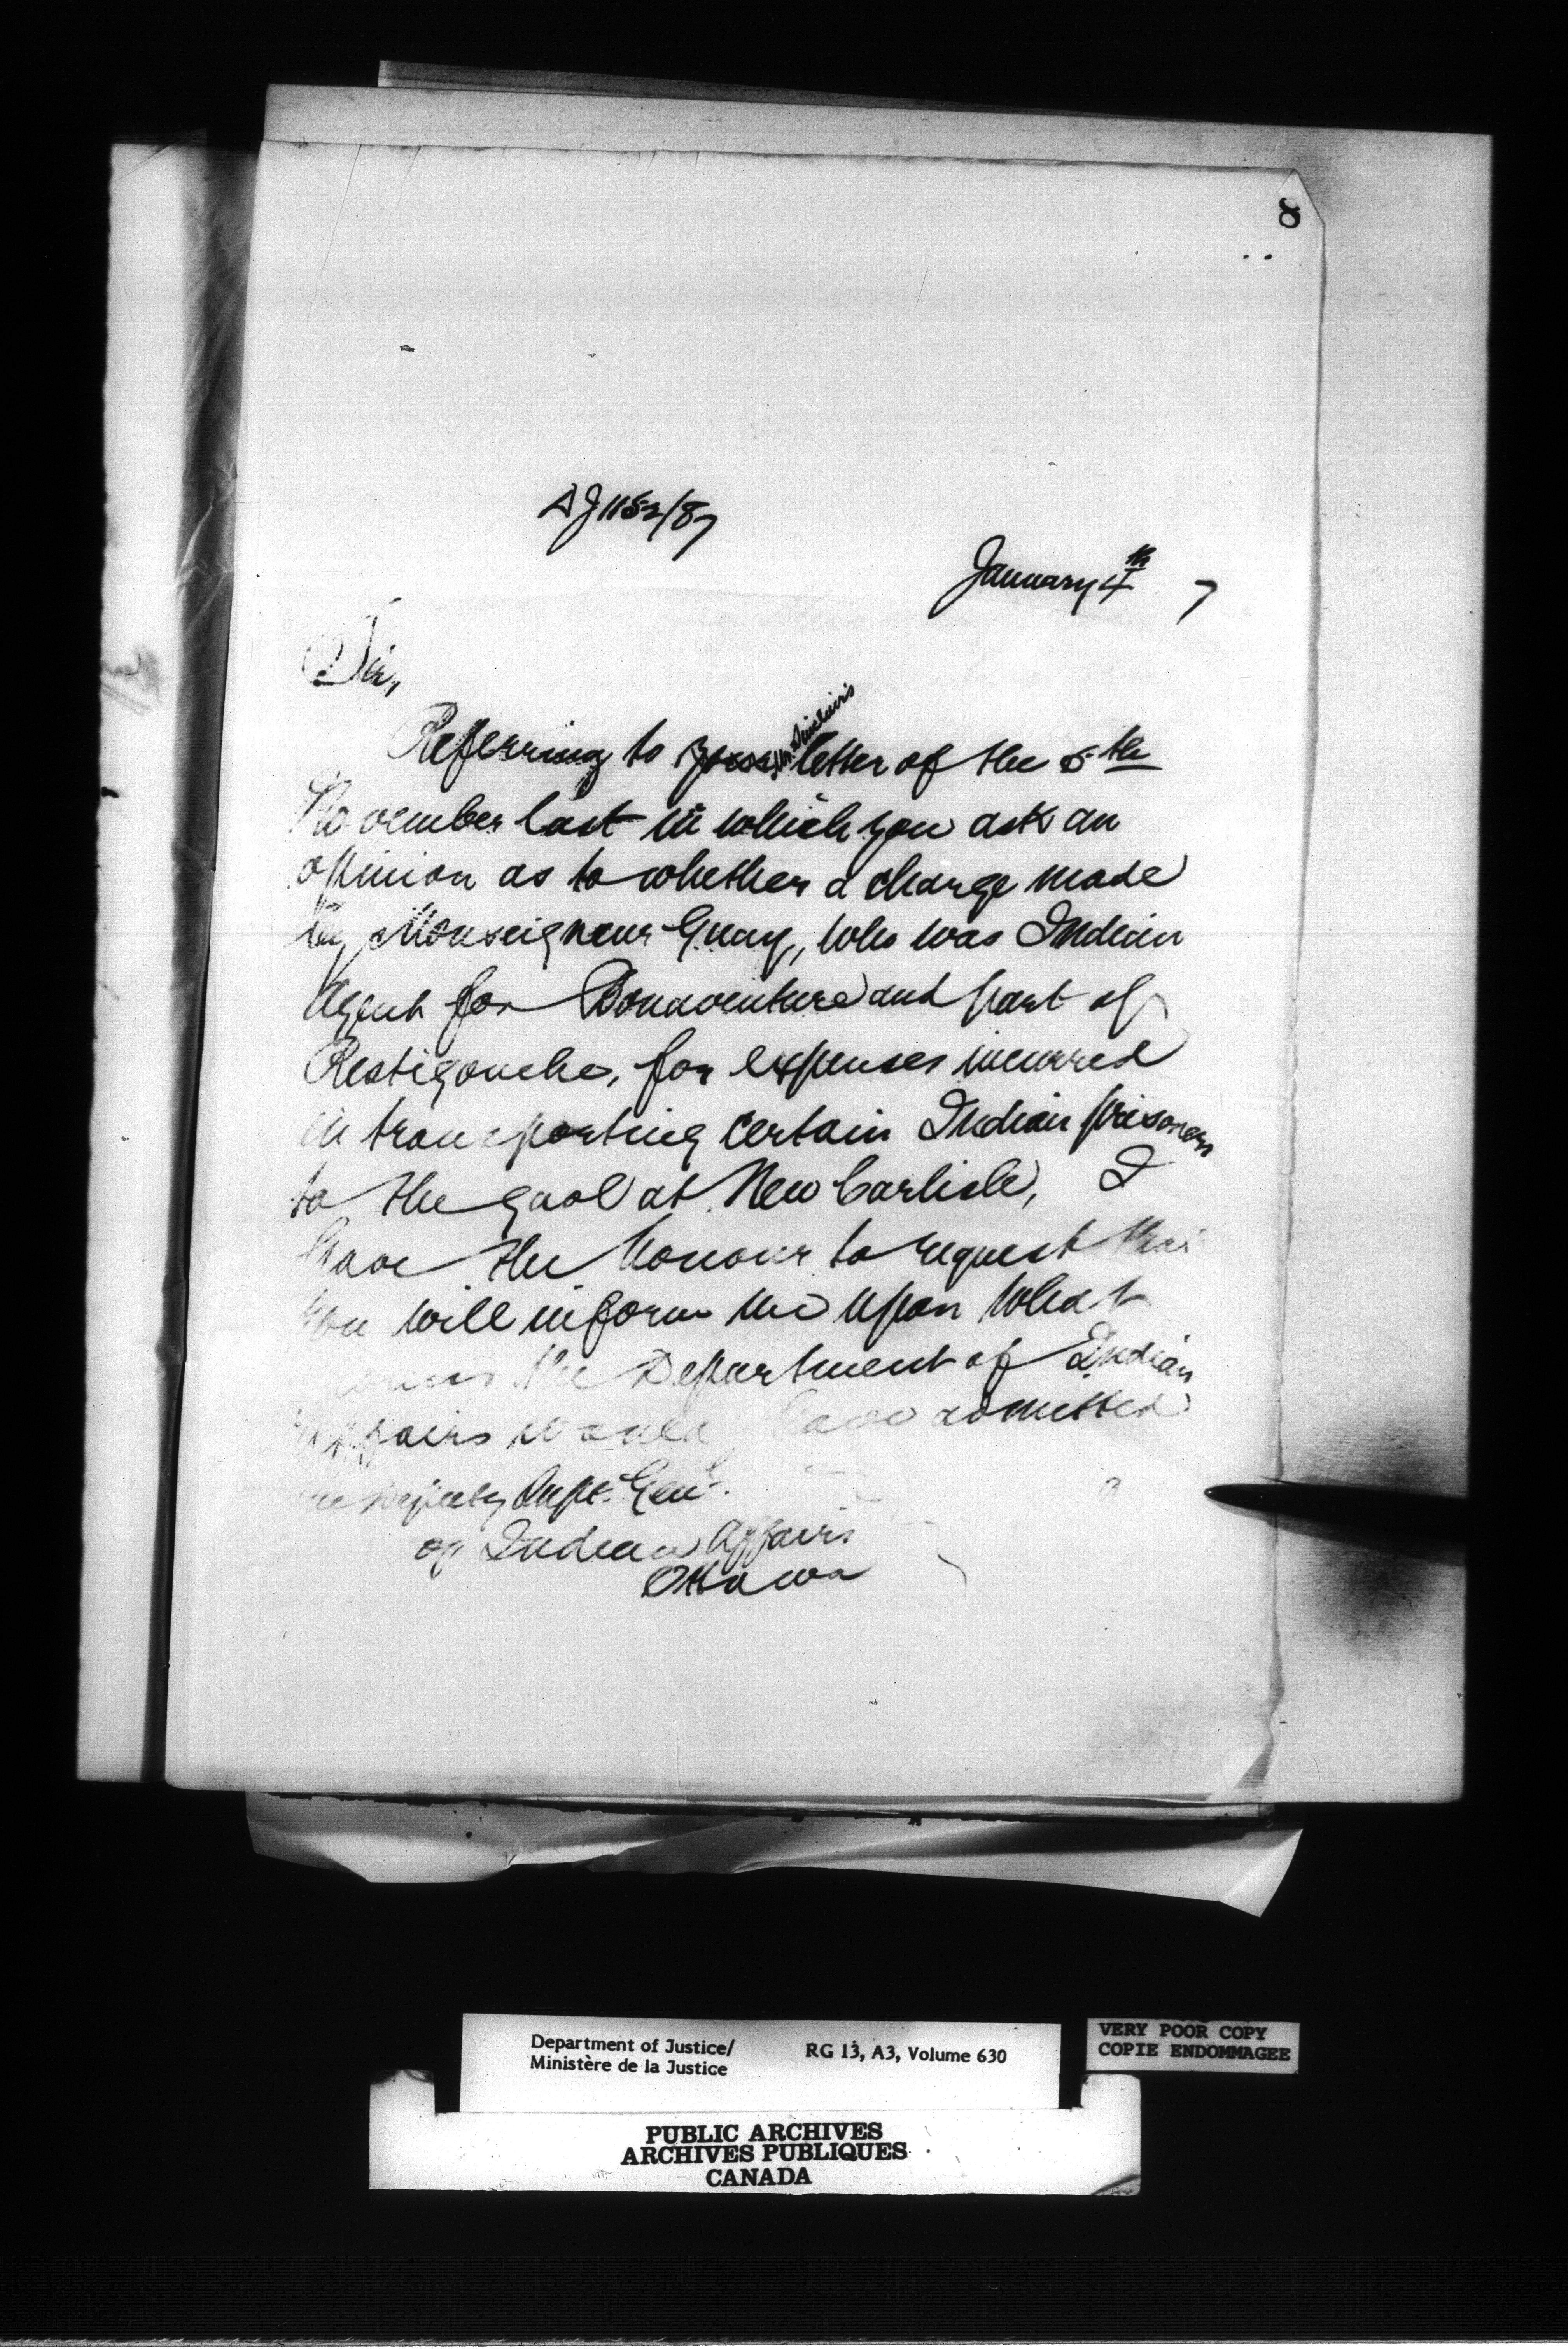 8
AJ 1152/87
January 4th 7
Sir,
Referring to your Mr. Sinclair's letter of the 5th
November last in which you ask an
opinion as to whether a charge made
by Monseigneur Guay, who was Indian
Agent for Bonaventure and part of
Restigouche, for expenses incurred
in transporting certain Indian prisoners
to the gaol at New Carlisle, I
have the honour to request that
you will inform me upon what
the Department of Indian
Affairs would have admitted
The Deputy Supt. Genl.
of Indian Affairs
Ottawa
Department of Justice/
Ministère de la Justice
RG 13, A3, Volume 630
VERY POOR COPY
COPIE ENDOMMAGEE
PUBLIC ARCHIVES
ARCHIVES PUBLIQUES
CANADA